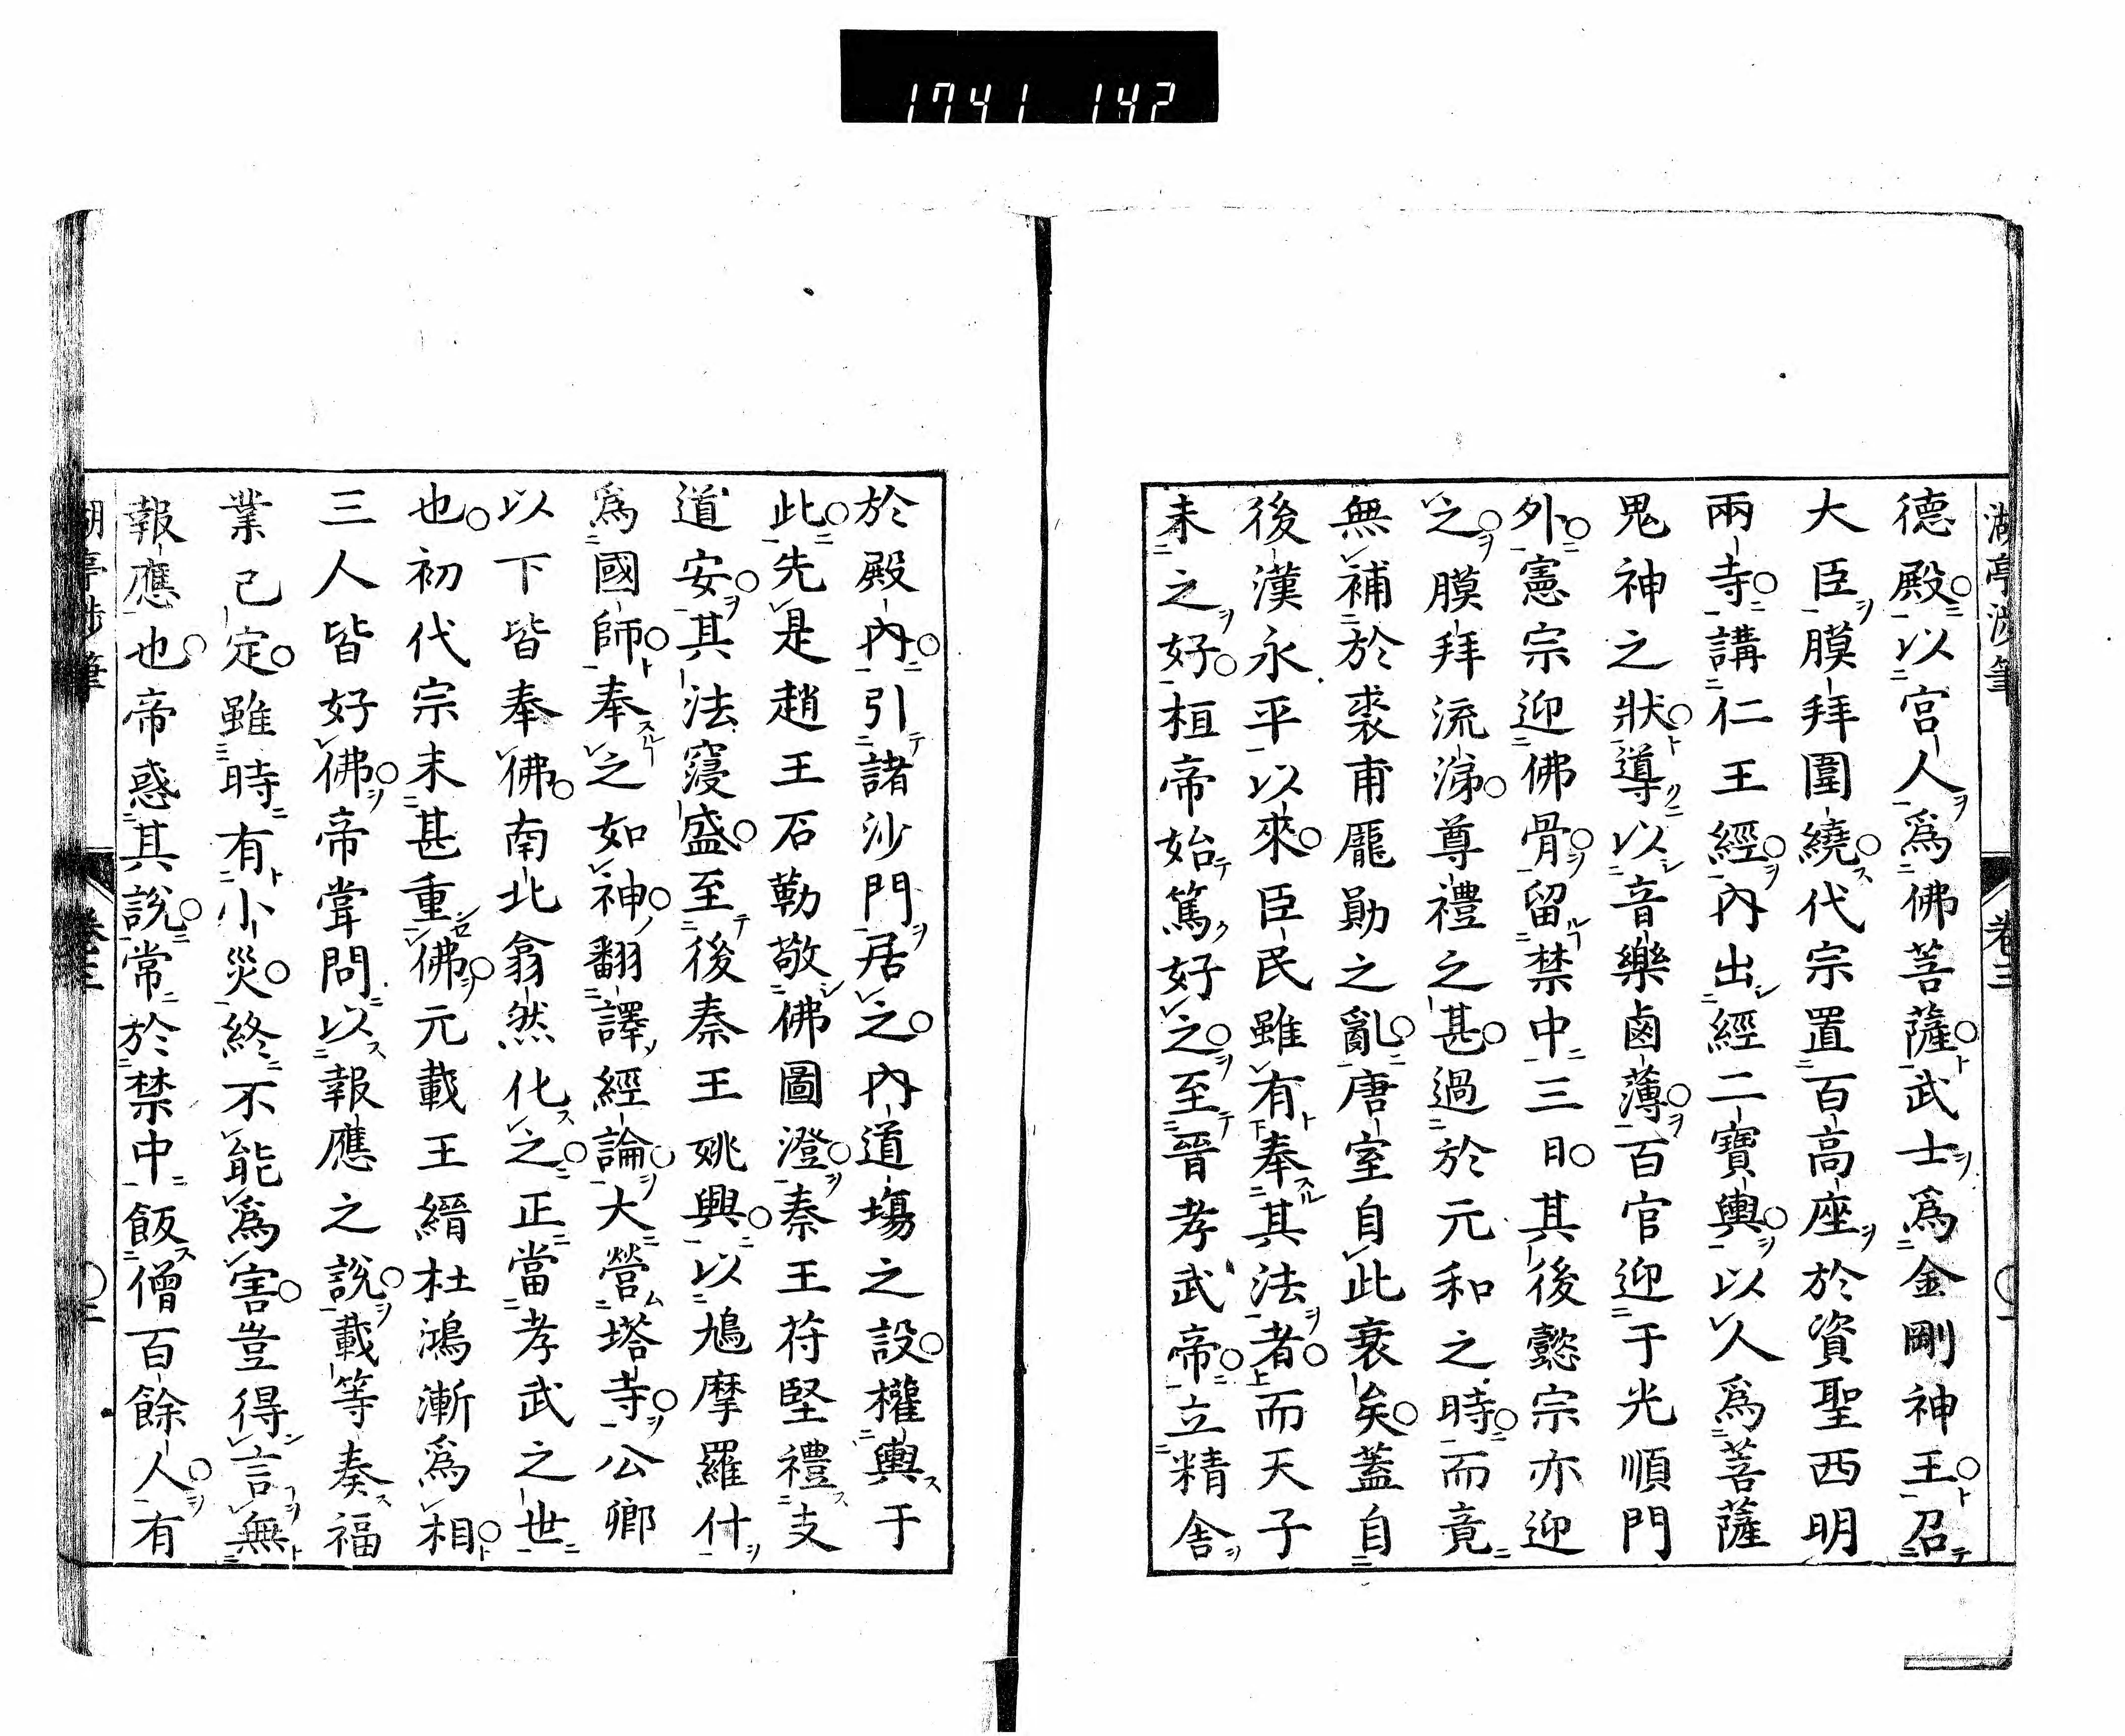 1741 142
湖亭涉筆 卷二 〇一
德殿以宮人爲佛菩薩武士爲金剛神王召
大臣膜拜圍繞代宗置百高座於資聖西明
兩寺講仁王經內出經二寶輿以人爲菩薩
鬼神之狀導以音樂鹵薄百官迎于光順門
外憲宗迎佛骨留禁中三日其後懿宗亦迎
之膜拜流涕尊禮之甚過於元和之時而竟
無補於裘甫龎勛之亂唐室自此衰矣蓋自
後漢永平以來臣民雖有奉其法者而天子
未之好桓帝始篤好之至晉孝武帝立精舍
於殿內引諸沙門居之內道場之設權輿于
此先是趙王石勒敬佛圖澄秦王苻堅禮支
道安其法寖盛至後秦王姚興以鳩摩羅什
爲國師奉之如神翻譯經論大營塔寺公卿
以下皆奉佛南北翕然化之正當孝武之世
也初代宗末甚重佛元載王縉杜鴻漸爲相
三人皆好佛帝甞問以報應之說載等奏福
業已定雖時有小災終不能爲害豈得言無
報應也帝惑其說常於禁中飯僧百餘人有
湖亭涉筆 卷二 〇二